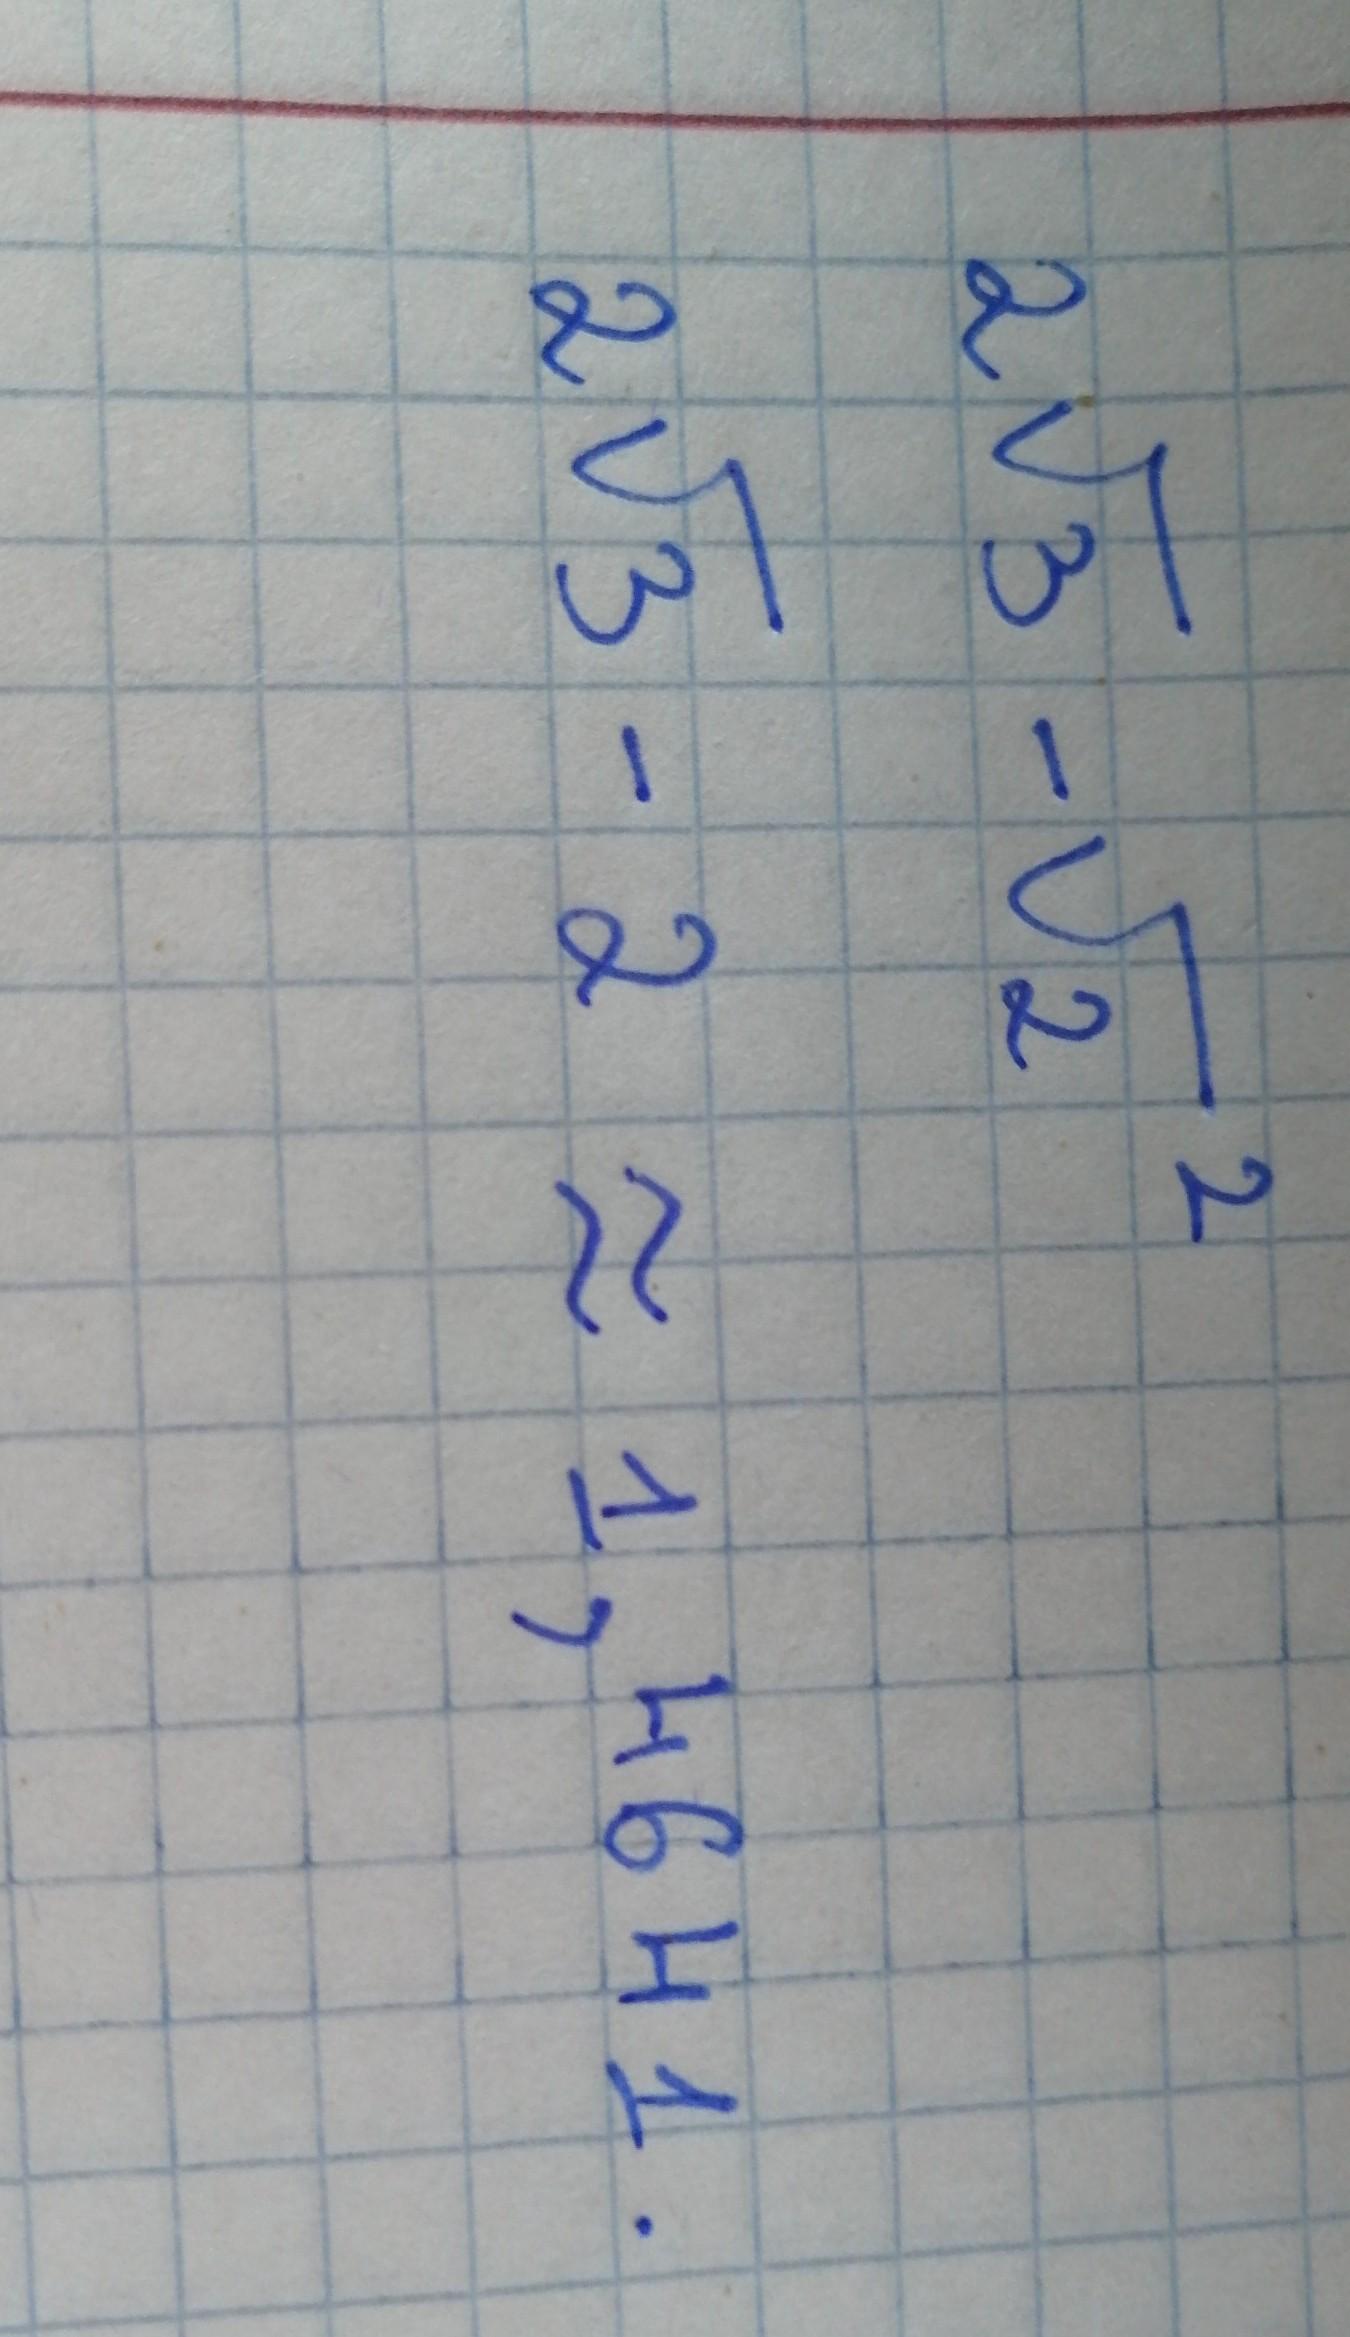 2√3 - √2²
2√3 - 2 ≈ 1,4641.